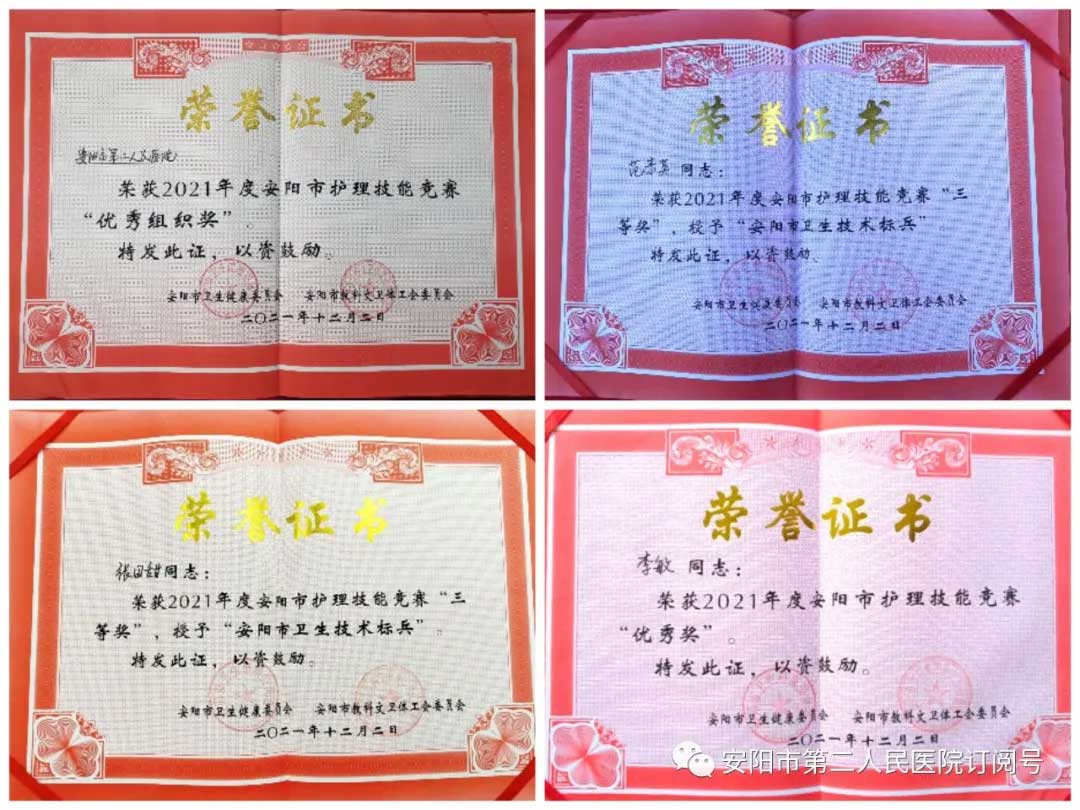 荣誉证书
安阳市第二人民医院
荣获2021年度安阳市护理技能竞赛
“优秀组织奖”。
特发此证，以资鼓励。
安阳市卫生健康委员会 安阳市教科文卫体工会委员会
二〇二一年十二月二日
荣誉证书
同志：
荣获2021年度安阳市护理技能竞赛“三
等奖”，授予“安阳市卫生技术标兵”。
特发此证，以资鼓励。
安阳市卫生健康委员会 安阳市教科文卫体工会委员会
二〇二一年十二月二日
荣誉证书
张田甜同志：
荣获2021年度安阳市护理技能竞赛“三
等奖”，授予“安阳市卫生技术标兵”。
特发此证，以资鼓励。
安阳市卫生健康委员会 安阳市教科文卫体工会委员会
二〇二一年十二月二日
荣誉证书
李敏 同志：
荣获2021年度安阳市护理技能竞赛
“优秀奖”。
特发此证，以资鼓励。
安阳市卫生健康委员会 安阳市教科文卫体工会委员会
二〇二一年十二月二日
安阳市第二人民医院订阅号